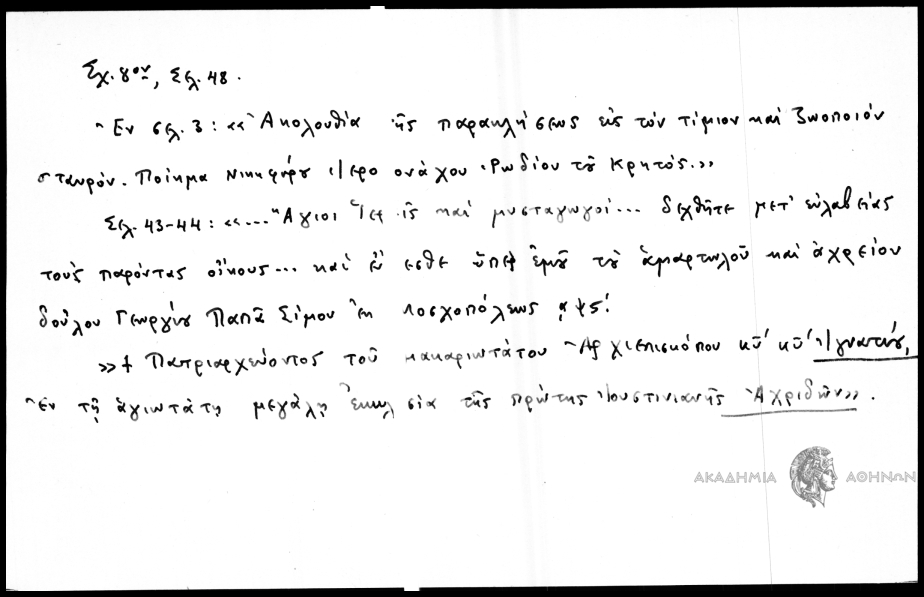 Σχ. 8ον, Σελ. 48.
Ἐν σελ. 3: «Ἀκολουθία τῆς παρακλήσεως εἰς τὸν τίμιον καὶ ζωοποιὸν
σταυρόν. Ποίημα Νικηφόρου Ἱερομονάχου Ῥωδίου τοῦ Κρητός.»
Σελ. 43-44: «...Ἅγιοι καὶ μυσταγωγοί... δεχθῆτε μετ' εὐλαβείας
τοὺς παρόντας οἴκους... καὶ ὑπὲρ ἐμοῦ τοῦ ἁμαρτωλοῦ καὶ ἀχρείου
δούλου Γεωργίου Παπᾶ Σίμου ἐκ Μοσχοπόλεως
» + Πατριαρχεύοντος τοῦ μακαριωτάτου Ἀρχιεπισκόπου κυ' κυ' Ἰγνατίου,
ἐν τῇ ἁγιωτάτῃ μεγάλῃ ἐκκλησίᾳ τῆς πρώτης Ἰουστινιανῆς Ἀχριδῶν».
ΑΚΑΔΗΜΙΑ ΑΘΗΝΩΝ